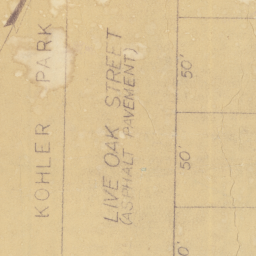 KOHLER PARK
LIVE OAK STREET
(ASPHALT PAVEMENT)
50'
50'
0'